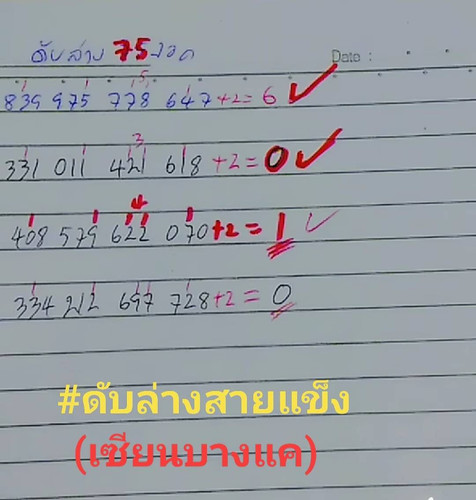 ดับล่าง 75 งวด
Date :
5
839 975 778 647+2=6
3
331 011 421 618+2=0
4
408 579 622 070+2=1
334 212 697 728+2=0
#ดับล่างสายแข็ง
(เซียนบางแค)